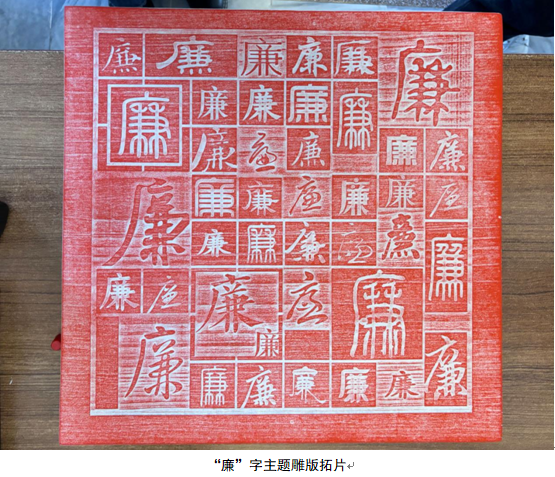 廉 廉 廉 廉 廉 廉
廉 廉 廉 廉 廉
廉 廉 廉 廉 廉
廉 廉 廉 廉 廉 廉 廉
廉 廉 廉 廉 廉 廉
廉 廉 廉 廉 廉
廉 廉 廉
廉 廉 廉 廉 廉
“廉”字主题雕版拓片